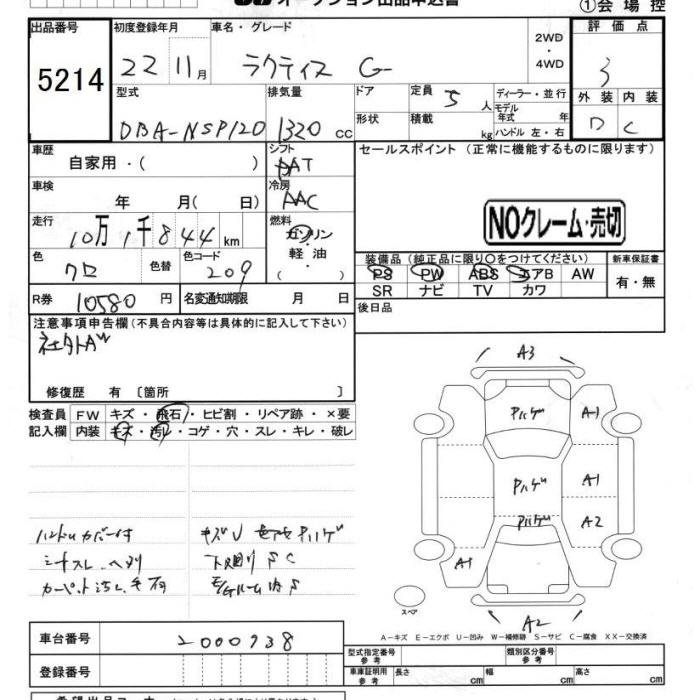 オークション出品申込書
①会場控
出品番号
5214
初度登録年月
22 11月
車名・グレード
ラクティス G
2WD
・
4WD
評価点
3
型式
DBA-NSP120
排気量
1320 cc
ドア
形状
定員 5 人
積載 kg
ディーラー・並行
モデル
年式 年
ハンドル 左・右
外装 内装
D C
車歴
自家用・( )
シフト
AT
車検
年 月( 日)
冷房
AAC
走行
10万1千844km
燃料
ガソリン
軽油
( )
色
クロ
色替
色コード
209
R券 10580 円
名変通知期限 月 日
セールスポイント(正常に機能するものに限ります)
NOクレーム・売切
装備品(純正品に限り○をつけてください)
PS PW ABS エアB AW
SR ナビ TV カワ
新車保証書
有・無
後日品
注意事項申告欄(不具合内容等は具体的に記入して下さい)
修復歴 有 〔箇所 〕
検査員
記入欄
FW キズ・飛石・ヒビ割・リペア跡・×要
内装 キズ・汚レ・コゲ・穴・スレ・キレ・破レ
ハンドルカバー付
シートスレ、ヘタリ
下廻り S C
A3
Pハゲ
A1
Pハゲ
A1
Pハゲ
A2
A1
スペア
A2
A-キズ E-エクボ U-凹み W-補修跡 S-サビ C-腐食 XX-交換済
車台番号
2000938
登録番号
型式指定番号
参考
類別区分番号
参考
車庫証明用
参考
長さ cm
幅 cm
高さ cm